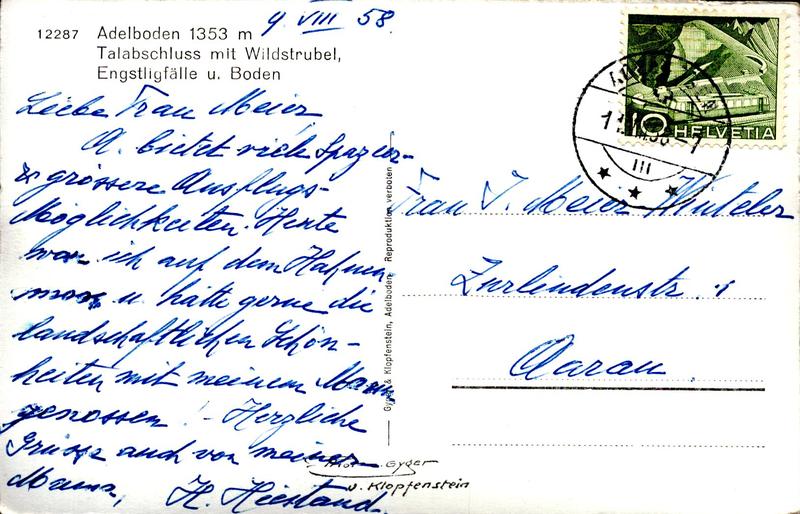 9. VIII 58.
12287 Adelboden 1353 m
Talabschluss mit Wildstrubel,
Engstligfälle u. Boden
Liebe Frau Meier
A. bietet viele Spazier-
u. grössere Ausflugs-
Möglichkeiten. Heute
war ich auf dem Hahnen-
moos u. hätte gerne die
landschaftlichen Schön-
heiten mit meinem Mann
genossen! - Herzliche
Grüsse auch von meiner
Mama, H. Hiestand.
Gyger & Klopfenstein, Adelboden Reproduktion verboten
10 HELVETIA
III
Frau J. Meier Winteler
Zurlindenstr. 1
Aarau.
Gyger
u. Klopfenstein